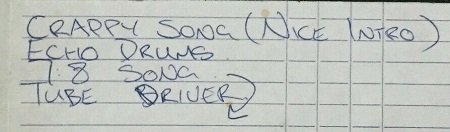 CRAPPY SONG (NICE INTRO)
ECHO DRUMS
7:8 SONG
TUBE DRIVER